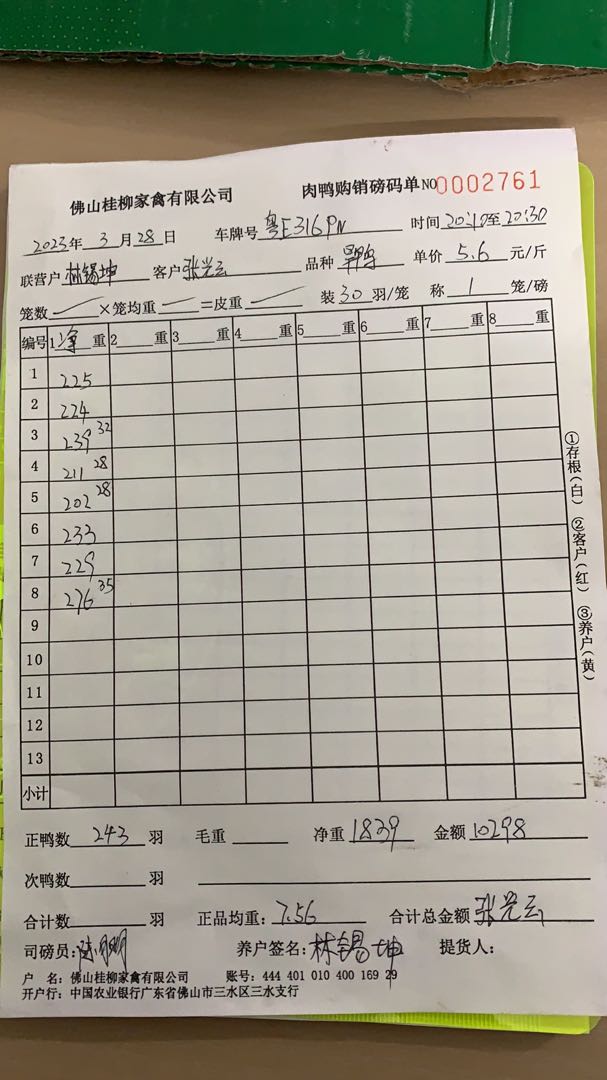 佛山桂柳家禽有限公司 肉鸭购销磅码单 NO 0002761
2023年 3 月 28 日 车牌号 粤E316PN 时间 20:10至20:30
联营户 林锡坤 客户 张光云 品种 单价 5.6 元/斤
笼数 ×笼均重 =皮重 装 30 羽/笼 称 1 笼/磅
编号 1 净 重 2 重 3 重 4 重 5 重 6 重 7 重 8 重
1 225
2 224
3 239 32
4 211 28
5 202 28
6 233
7 229
8 276 35
9
10
11
12
13
小计
①存根(白) ②客户(红) ③养户(黄)
正鸭数 243 羽 毛重 净重 1839 金额 10298
次鸭数 羽
合计数 羽 正品均重: 7.56 合计总金额 张光云
司磅员: 养户签名: 林锡坤 提货人:
户 名: 佛山桂柳家禽有限公司 账号: 444 401 010 400 169 29
开户行: 中国农业银行广东省佛山市三水区三水支行